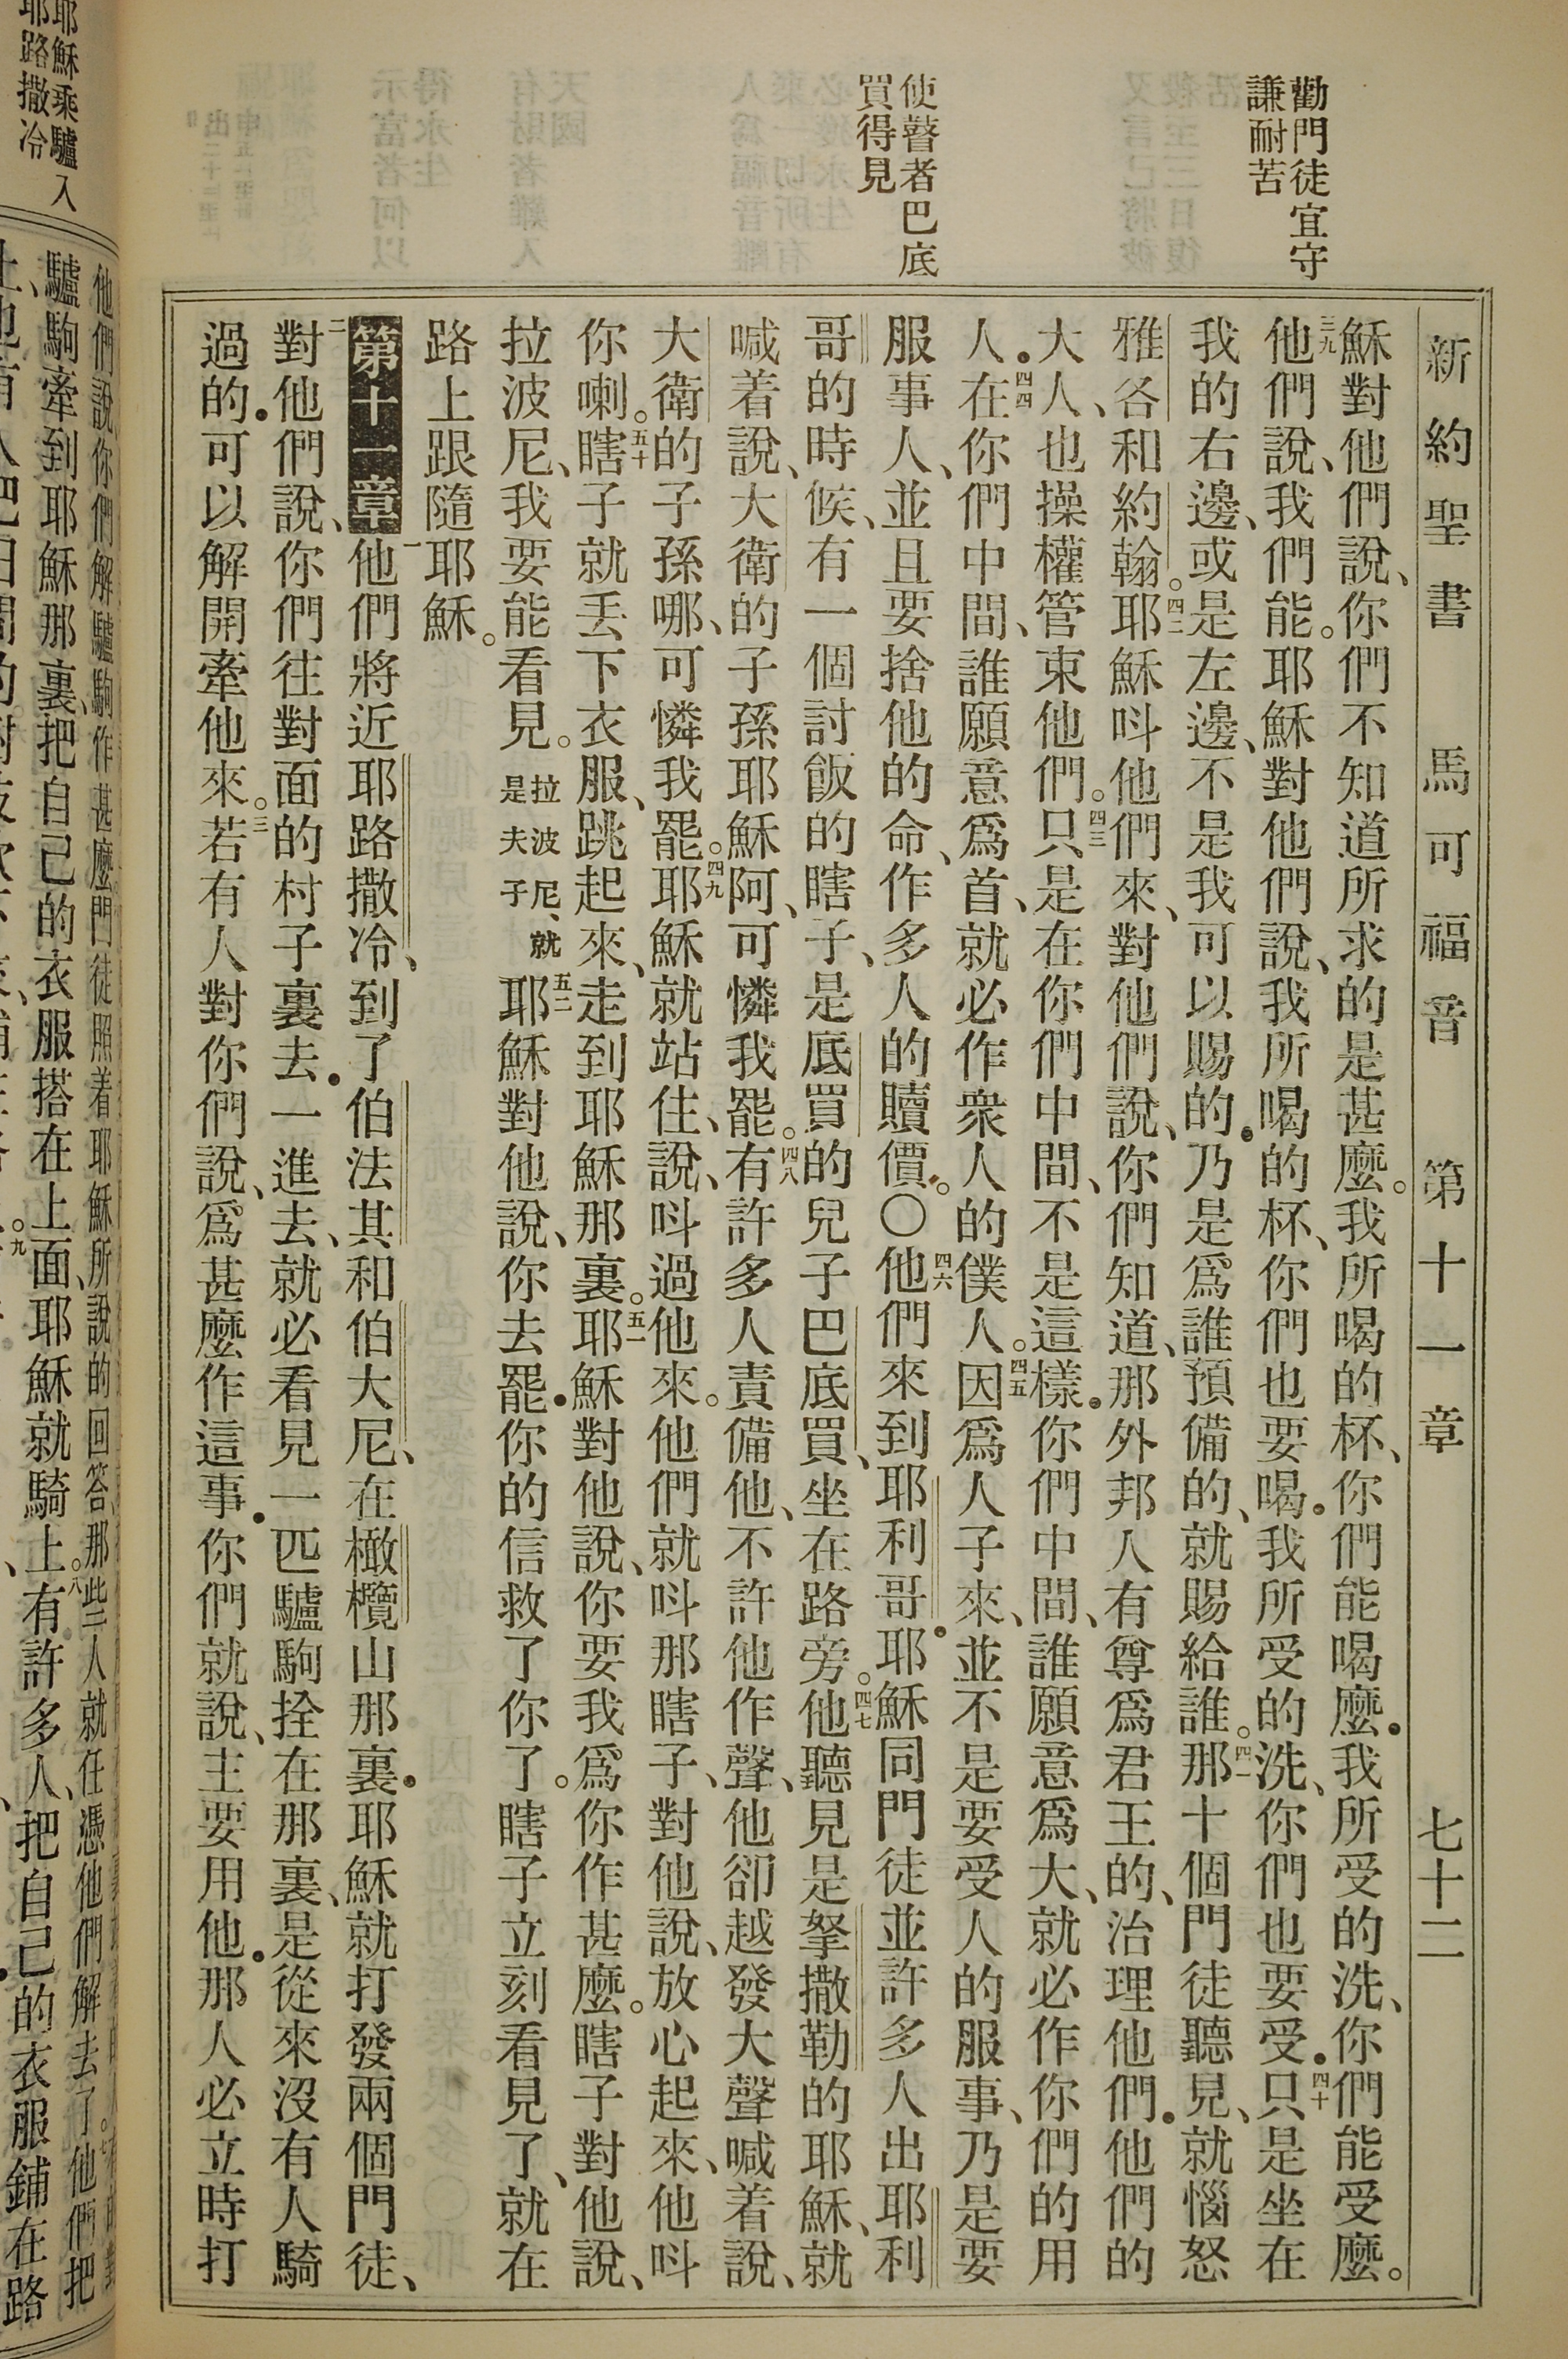 新約聖書 馬可福音 第十一章 七十二
勸門徒宜守
謙耐苦
使瞽者巴底
買得見
穌對他們說、你們不知道所求的是甚麼。我所喝的杯、你們能喝麼．我所受的洗、你們能受麼。
三九他們說、我們能。耶穌對他們說、我所喝的杯、你們也要喝．我所受的洗、你們也要受．四十只是坐在
我的右邊、或是左邊、不是我可以賜的．乃是爲誰預備的、就賜給誰。四一那十個門徒聽見、就惱怒
雅各和約翰。四二耶穌呌他們來、對他們說、你們知道、那外邦人有尊爲君王的、治理他們．他們的
大人、也操權管束他們。四三只是在你們中間、不是這樣．你們中間、誰願意爲大、就必作你們的用
人．四四在你們中間、誰願意爲首、就必作衆人的僕人。四五因爲人子來、並不是要受人的服事、乃是要
服事人、並且要捨他的命、作多人的贖價。〇四六他們來到耶利哥．耶穌同門徒並許多人出耶利
哥的時候、有一個討飯的瞎子、是底買的兒子巴底買、坐在路旁。四七他聽見是拏撒勒的耶穌、就
喊着說、大衛的子孫耶穌阿、可憐我罷。四八有許多人責備他、不許他作聲、他卻越發大聲喊着說、
大衛的子孫哪、可憐我罷。四九耶穌就站住、說、呌過他來。他們就呌那瞎子、對他說、放心起來、他呌
你喇。五十瞎子就丟下衣服、跳起來、走到耶穌那裏。五一耶穌對他說、你要我爲你作甚麼。瞎子對他說、
拉波尼、我要能看見。拉波尼、就是夫子五二耶穌對他說、你去罷．你的信救了你了。瞎子立刻看見了、就在
路上跟隨耶穌。
第十一章 一他們將近耶路撒冷、到了伯法其和伯大尼、在橄欖山那裏．耶穌就打發兩個門徒、
二對他們說、你們往對面的村子裏去．一進去、就必看見一匹驢駒拴在那裏、是從來沒有人騎
過的．可以解開牽他來。三若有人對你們說、爲甚麼作這事．你們就說、主要用他．那人必立時打
耶穌乘驢入
耶路撒冷
他們說、你們解驢駒作甚麼。門徒照着耶穌所說的回答、那些人就任憑他們解去了。七他們把
驢駒牽到耶穌那裏、把自己的衣服搭在上面、耶穌就騎上。八有許多人、把自己的衣服鋪在路